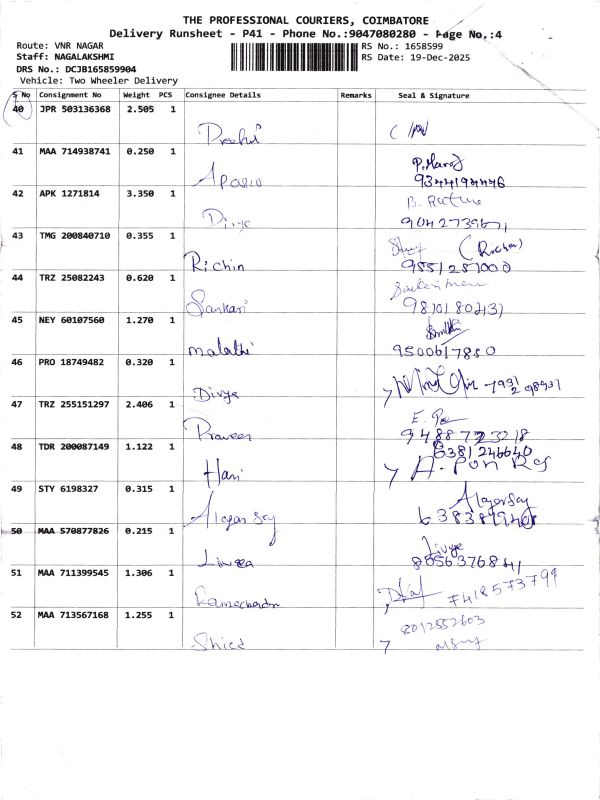 THE PROFESSIONAL COURIERS, COIMBATORE
Delivery Runsheet - P41 - Phone No.:9047080280 - Page No.:4
Route: VNR NAGAR
Staff: NAGALAKSHMI
DRS No.: DCJB165859904
Vehicle: Two Wheeler Delivery
RS No.: 1658599
RS Date: 19-Dec-2025
S No Consignment No Weight PCS Consignee Details Remarks Seal & Signature
40 JPR 503136368 2.505 1
41 MAA 714938741 0.250 1
9344194446
42 APK 1271814 3.350 1
Divya
43 TMG 200840710 0.355 1
Richin
9551251000
44 TRZ 25082243 0.620 1
Sankari
45 NEY 60107560 1.270 1
malathi
9500617850
46 PRO 18749482 0.320 1
Divya
47 TRZ 255151297 2.406 1
Praveen
9488723218
48 TDR 200087149 1.122 1
6381246640
Hari
49 STY 6198327 0.315 1
50 MAA 570877826 0.215 1
8056376841
51 MAA 711399545 1.306 1
7418573799
52 MAA 713567168 1.255 1
8012552603